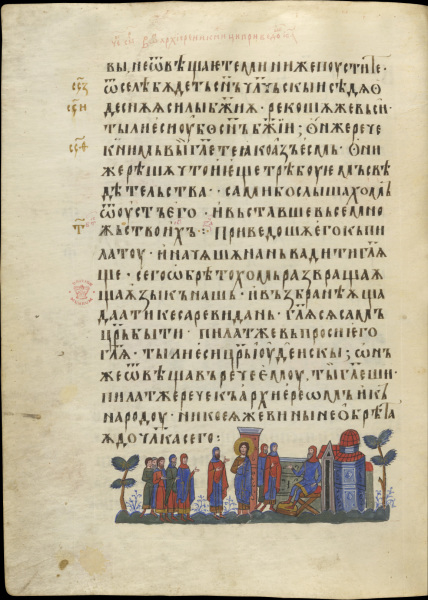 вы, не ѿвѣщаете ми ни же поустите·
ѿселѣ бѫдетъ сн҃ъ чл҃чьскыи сѣдѧ ѡ
деснѫѫ силы бж҃иѧ· рекошѫ же вьси·
ты ли еси оубо сн҃ъ бж҃ии; ѡн же рече
к ним вы гл҃ете ꙗко азъ есмь· ѡни
же рѣшѫ что и еще трѣбоуемъ свѣ
дѣтельства· сами бо слышахомъ
ѿ оустъ его· и вьставше вьсе мно
т҃ жьство ихъ: приведошѫ его къ пи
латоу· и начѧшѫ на нь вадити гл҃ѧ
ще· сего ѡбрѣтохомь развращаѫ
щаѫ ѧзыкъ нашь· и възбранѣѫща
даати кесареви дань· гл҃ѧ сѧ самъ
цр҃ѣ быти· пилат же въпроси его
гл҃ѧ· ты ли еси цр҃ь іоуденскы; ѡн
же ѿвѣщавъ рече емоу, ты гл҃еши·
пилат же рече къ архиереѡмъ и къ
народоу· никоеѫ же вины не обрѣта
ѫ до чл҃ка сего: